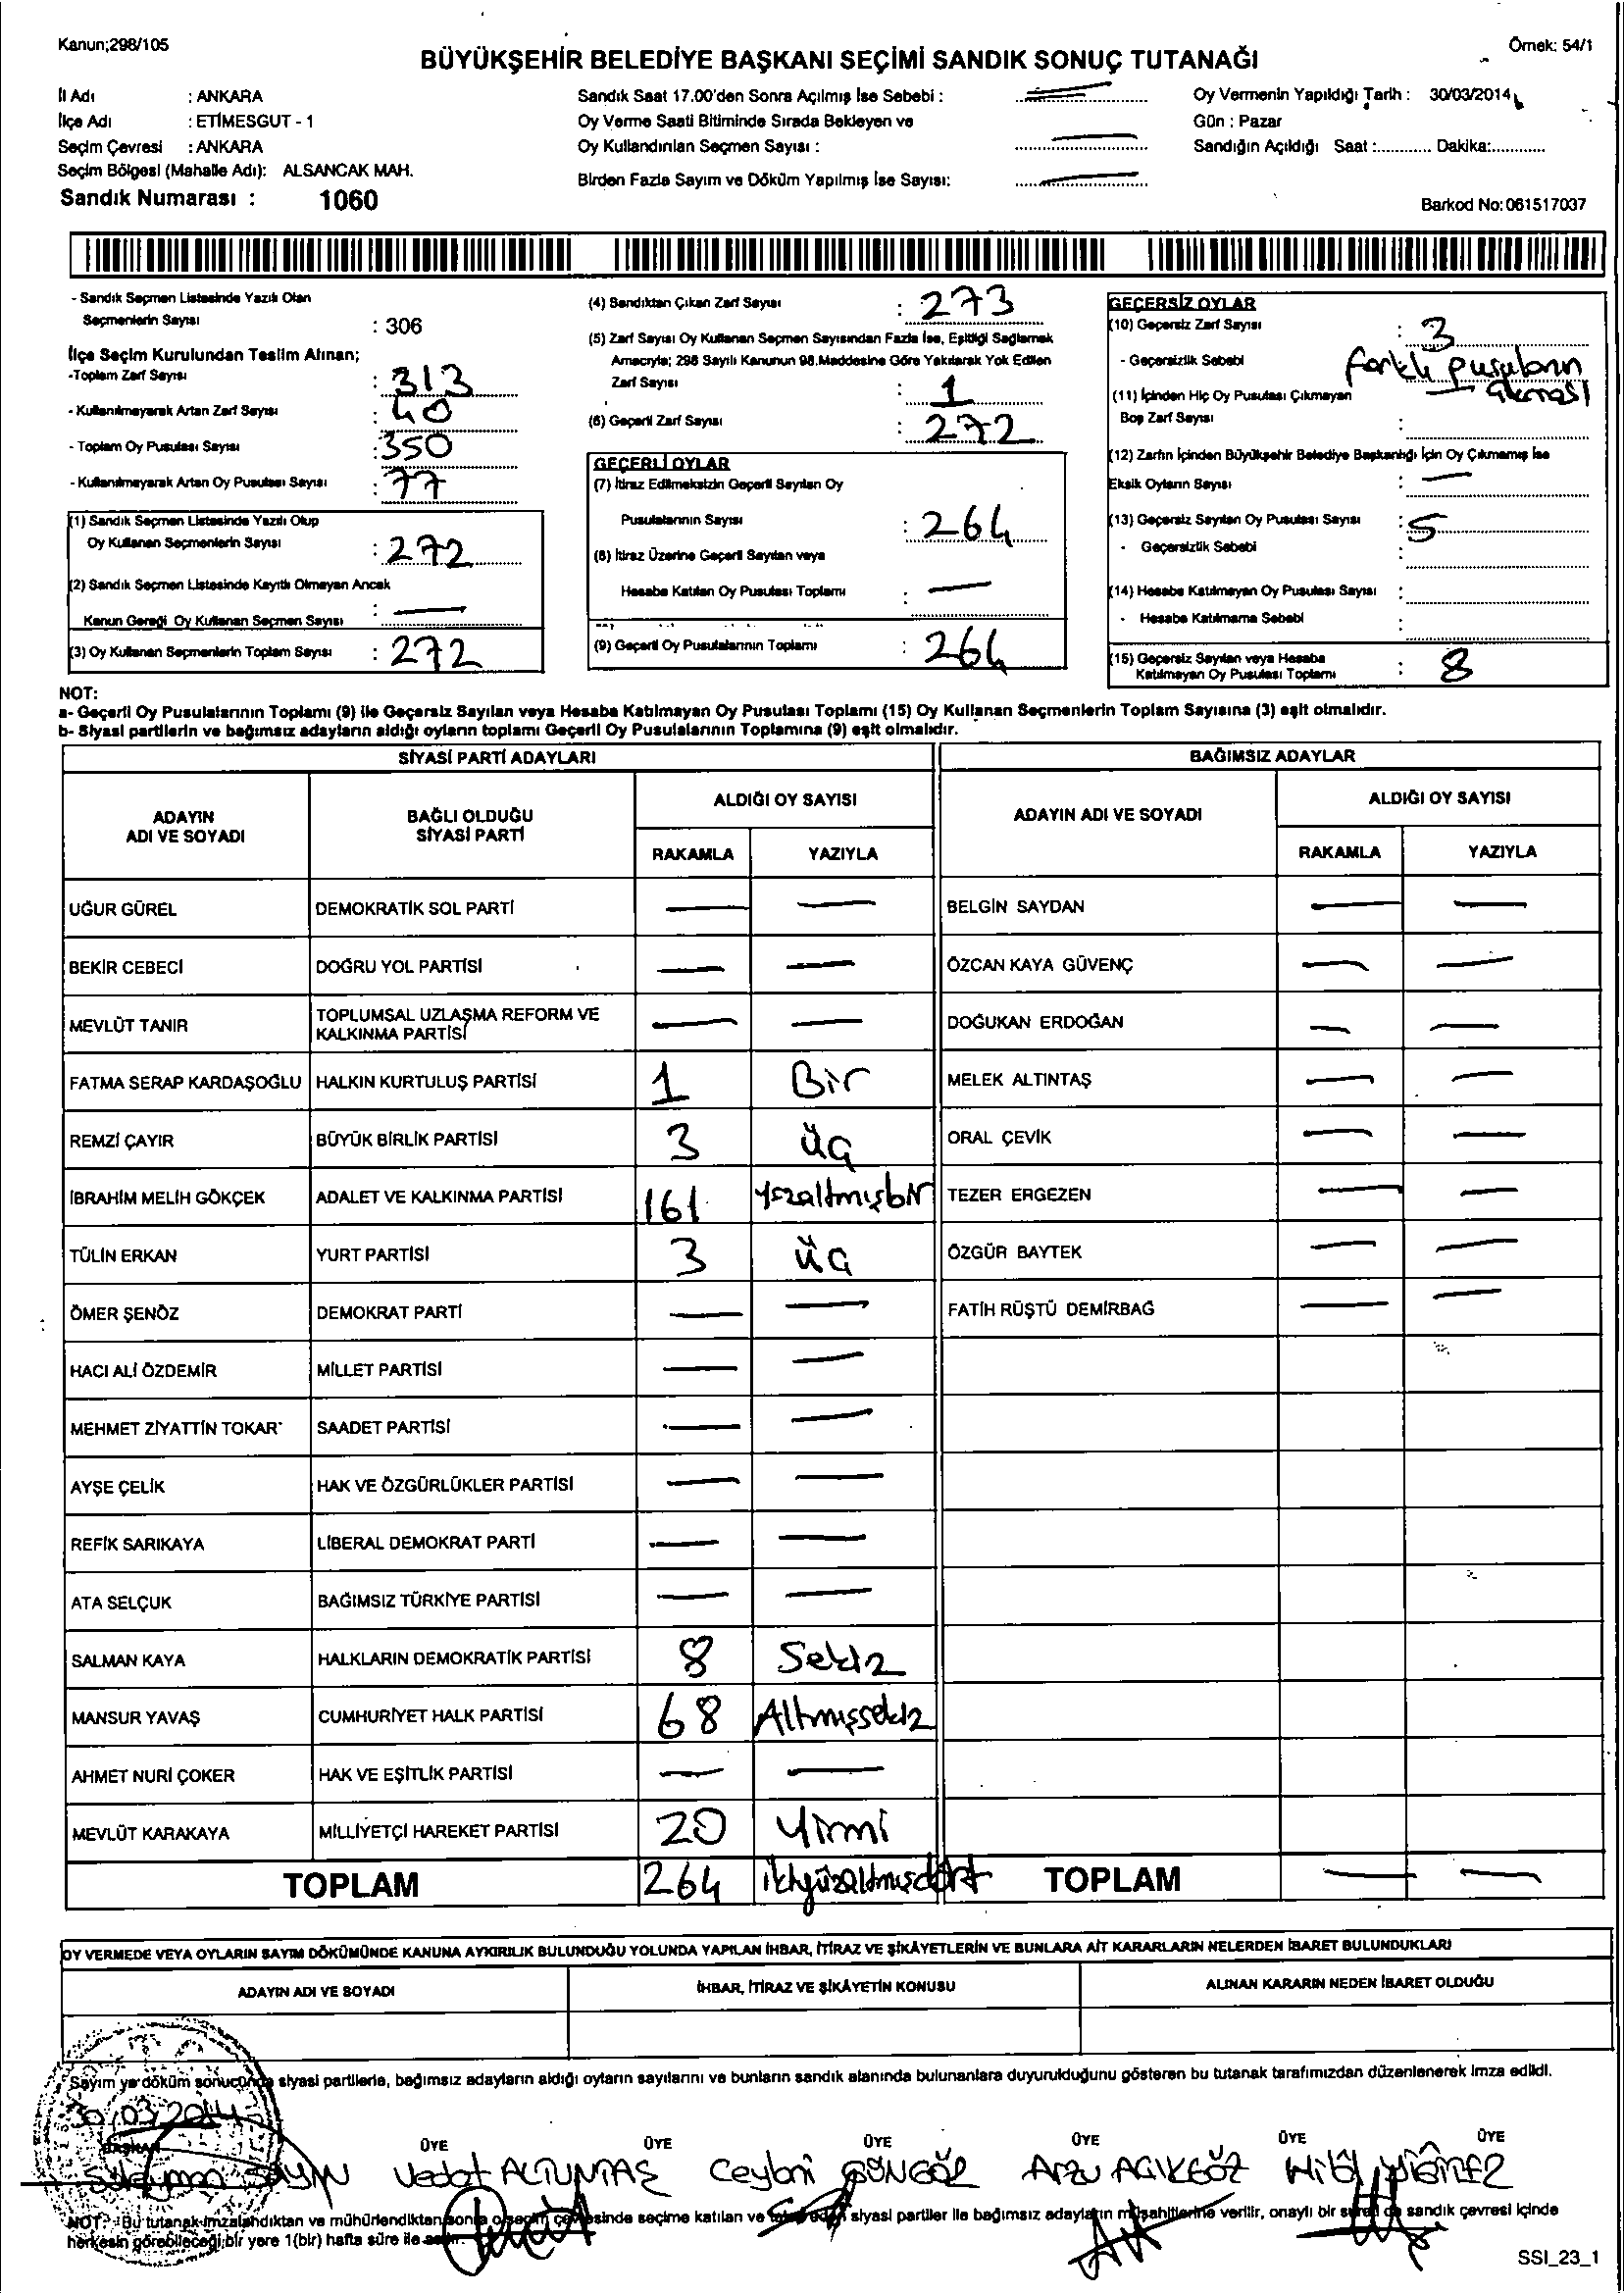 Kanun;298/105
Örnek: 54/1
BÜYÜKŞEHİR BELEDİYE BAŞKANI SEÇİMİ SANDIK SONUÇ TUTANAĞI
İl Adı : ANKARA
İlçe Adı : ETİMESGUT - 1
Seçim Çevresi : ANKARA
Seçim Bölgesi (Mahalle Adı): ALSANCAK MAH.
Sandık Numarası : 1060
Sandık Saat 17.00'den Sonra Açılmış İse Sebebi :
Oy Verme Saati Bitiminde Sırada Bekleyen ve
Oy Kullandırılan Seçmen Sayısı :
Birden Fazla Sayım ve Döküm Yapılmış İse Sayısı:
Oy Vermenin Yapıldığı Tarih : 30/03/2014
Gün : Pazar
Sandığın Açıldığı Saat :............ Dakika:............
Barkod No:061517037
- Sandık Seçmen Listesinde Yazılı Olan
Seçmenlerin Sayısı : 306
İlçe Seçim Kurulundan Teslim Alınan;
-Toplam Zarf Sayısı : 313
- Kullanılmayarak Artan Zarf Sayısı : 40
- Toplam Oy Pusulası Sayısı : 350
- Kullanılmayarak Artan Oy Pusulası Sayısı : 77
(1) Sandık Seçmen Listesinde Yazılı Olup
Oy Kullanan Seçmenlerin Sayısı : 272
(2) Sandık Seçmen Listesinde Kayıtlı Olmayan Ancak
Kanun Gereği Oy Kullanan Seçmen Sayısı : —
(3) Oy Kullanan Seçmenlerin Toplam Sayısı : 272
(4) Sandıktan Çıkan Zarf Sayısı : 273
(5) Zarf Sayısı Oy Kullanan Seçmen Sayısından Fazla İse, Eşitliği Sağlamak
Amacıyla; 298 Sayılı Kanunun 98.Maddesine Göre Yakılarak Yok Edilen
Zarf Sayısı : 1
(6) Geçerli Zarf Sayısı : 272
GEÇERLİ OYLAR
(7) İtiraz Edilmeksizin Geçerli Sayılan Oy
Pusulalarının Sayısı : 264
(8) İtiraz Üzerine Geçerli Sayılan veya
Hesaba Katılan Oy Pusulası Toplamı : —
(9) Geçerli Oy Pusulalarının Toplamı : 264
GEÇERSİZ OYLAR
(10) Geçersiz Zarf Sayısı : 3
- Geçersizlik Sebebi farklı pusuların çıkması
(11) İçinden Hiç Oy Pusulası Çıkmayan
Boş Zarf Sayısı : —
(12) Zarfın İçinden Büyükşehir Belediye Başkanlığı İçin Oy Çıkmamış İse
Eksik Oyların Sayısı : —
(13) Geçersiz Sayılan Oy Pusulası Sayısı : 5
- Geçersizlik Sebebi :
(14) Hesaba Katılmayan Oy Pusulası Sayısı :
- Hesaba Katılmama Sebebi :
(15) Geçersiz Sayılan veya Hesaba
Katılmayan Oy Pusulası Toplamı : 8
NOT:
a- Geçerli Oy Pusulalarının Toplamı (9) ile Geçersiz Sayılan veya Hesaba Katılmayan Oy Pusulası Toplamı (15) Oy Kullanan Seçmenlerin Toplam Sayısına (3) eşit olmalıdır.
b- Siyasi partilerin ve bağımsız adayların aldığı oyların toplamı Geçerli Oy Pusulalarının Toplamına (9) eşit olmalıdır.
SİYASİ PARTİ ADAYLARI
BAĞIMSIZ ADAYLAR
ADAYIN ADI VE SOYADI
BAĞLI OLDUĞU SİYASİ PARTİ
ALDIĞI OY SAYISI
RAKAMLA YAZIYLA
ADAYIN ADI VE SOYADI
ALDIĞI OY SAYISI
RAKAMLA YAZIYLA
UĞUR GÜREL DEMOKRATİK SOL PARTİ — — BELGİN SAYDAN — —
BEKİR CEBECİ DOĞRU YOL PARTİSİ — — ÖZCAN KAYA GÜVENÇ — —
MEVLÜT TANIR TOPLUMSAL UZLAŞMA REFORM VE KALKINMA PARTİSİ — — DOĞUKAN ERDOĞAN — —
FATMA SERAP KARDAŞOĞLU HALKIN KURTULUŞ PARTİSİ 1 Bir MELEK ALTINTAŞ — —
REMZİ ÇAYIR BÜYÜK BİRLİK PARTİSİ 3 üç ORAL ÇEVİK — —
İBRAHİM MELİH GÖKÇEK ADALET VE KALKINMA PARTİSİ 161 yüzaltmışbir TEZER ERGEZEN — —
TÜLİN ERKAN YURT PARTİSİ 3 üç ÖZGÜR BAYTEK — —
ÖMER ŞENÖZ DEMOKRAT PARTİ — — FATİH RÜŞTÜ DEMİRBAĞ — —
HACI ALİ ÖZDEMİR MİLLET PARTİSİ — —
MEHMET ZİYATTİN TOKAR SAADET PARTİSİ — —
AYŞE ÇELİK HAK VE ÖZGÜRLÜKLER PARTİSİ — —
REFİK SARIKAYA LİBERAL DEMOKRAT PARTİ — —
ATA SELÇUK BAĞIMSIZ TÜRKİYE PARTİSİ — —
SALMAN KAYA HALKLARIN DEMOKRATİK PARTİSİ 8 Sekiz
MANSUR YAVAŞ CUMHURİYET HALK PARTİSİ 68 Altmışsekiz
AHMET NURİ ÇOKER HAK VE EŞİTLİK PARTİSİ — —
MEVLÜT KARAKAYA MİLLİYETÇİ HAREKET PARTİSİ 20 Yirmi
TOPLAM 264 ikiyüzaltmışdört TOPLAM — —
OY VERMEDE VEYA OYLARIN SAYIM DÖKÜMÜNDE KANUNA AYKIRILIK BULUNDUĞU YOLUNDA YAPILAN İHBAR, İTİRAZ VE ŞİKÂYETLERİN VE BUNLARA AİT KARARLARIN NELERDEN İBARET BULUNDUKLARI
ADAYIN ADI VE SOYADI İHBAR, İTİRAZ VE ŞİKÂYETİN KONUSU ALINAN KARARIN NEDEN İBARET OLDUĞU
Sayım ve döküm sonucunda siyasi partilerle, bağımsız adayların aldığı oyların sayılarını ve bunların sandık alanında bulunanlara duyurulduğunu gösteren bu tutanak tarafımızdan düzenlenerek imza edildi.
30/03/2014
BAŞKAN ÜYE ÜYE ÜYE ÜYE ÜYE ÜYE
Süleyman SAYIN Vedat ALTUNTAŞ Ceylani GÜNGÖR Arzu AÇIKGÖZ
NOT: Bu tutanak imzalandıktan ve mühürlendikten sonra o seçim çevresinde seçime katılan ve siyasi partiler ile bağımsız adayların müşahitlerine verilir, onaylı bir sureti de sandık çevresi içinde
herkesin görebileceği bir yere 1(bir) hafta süre ile asılır.
SSI_23_1